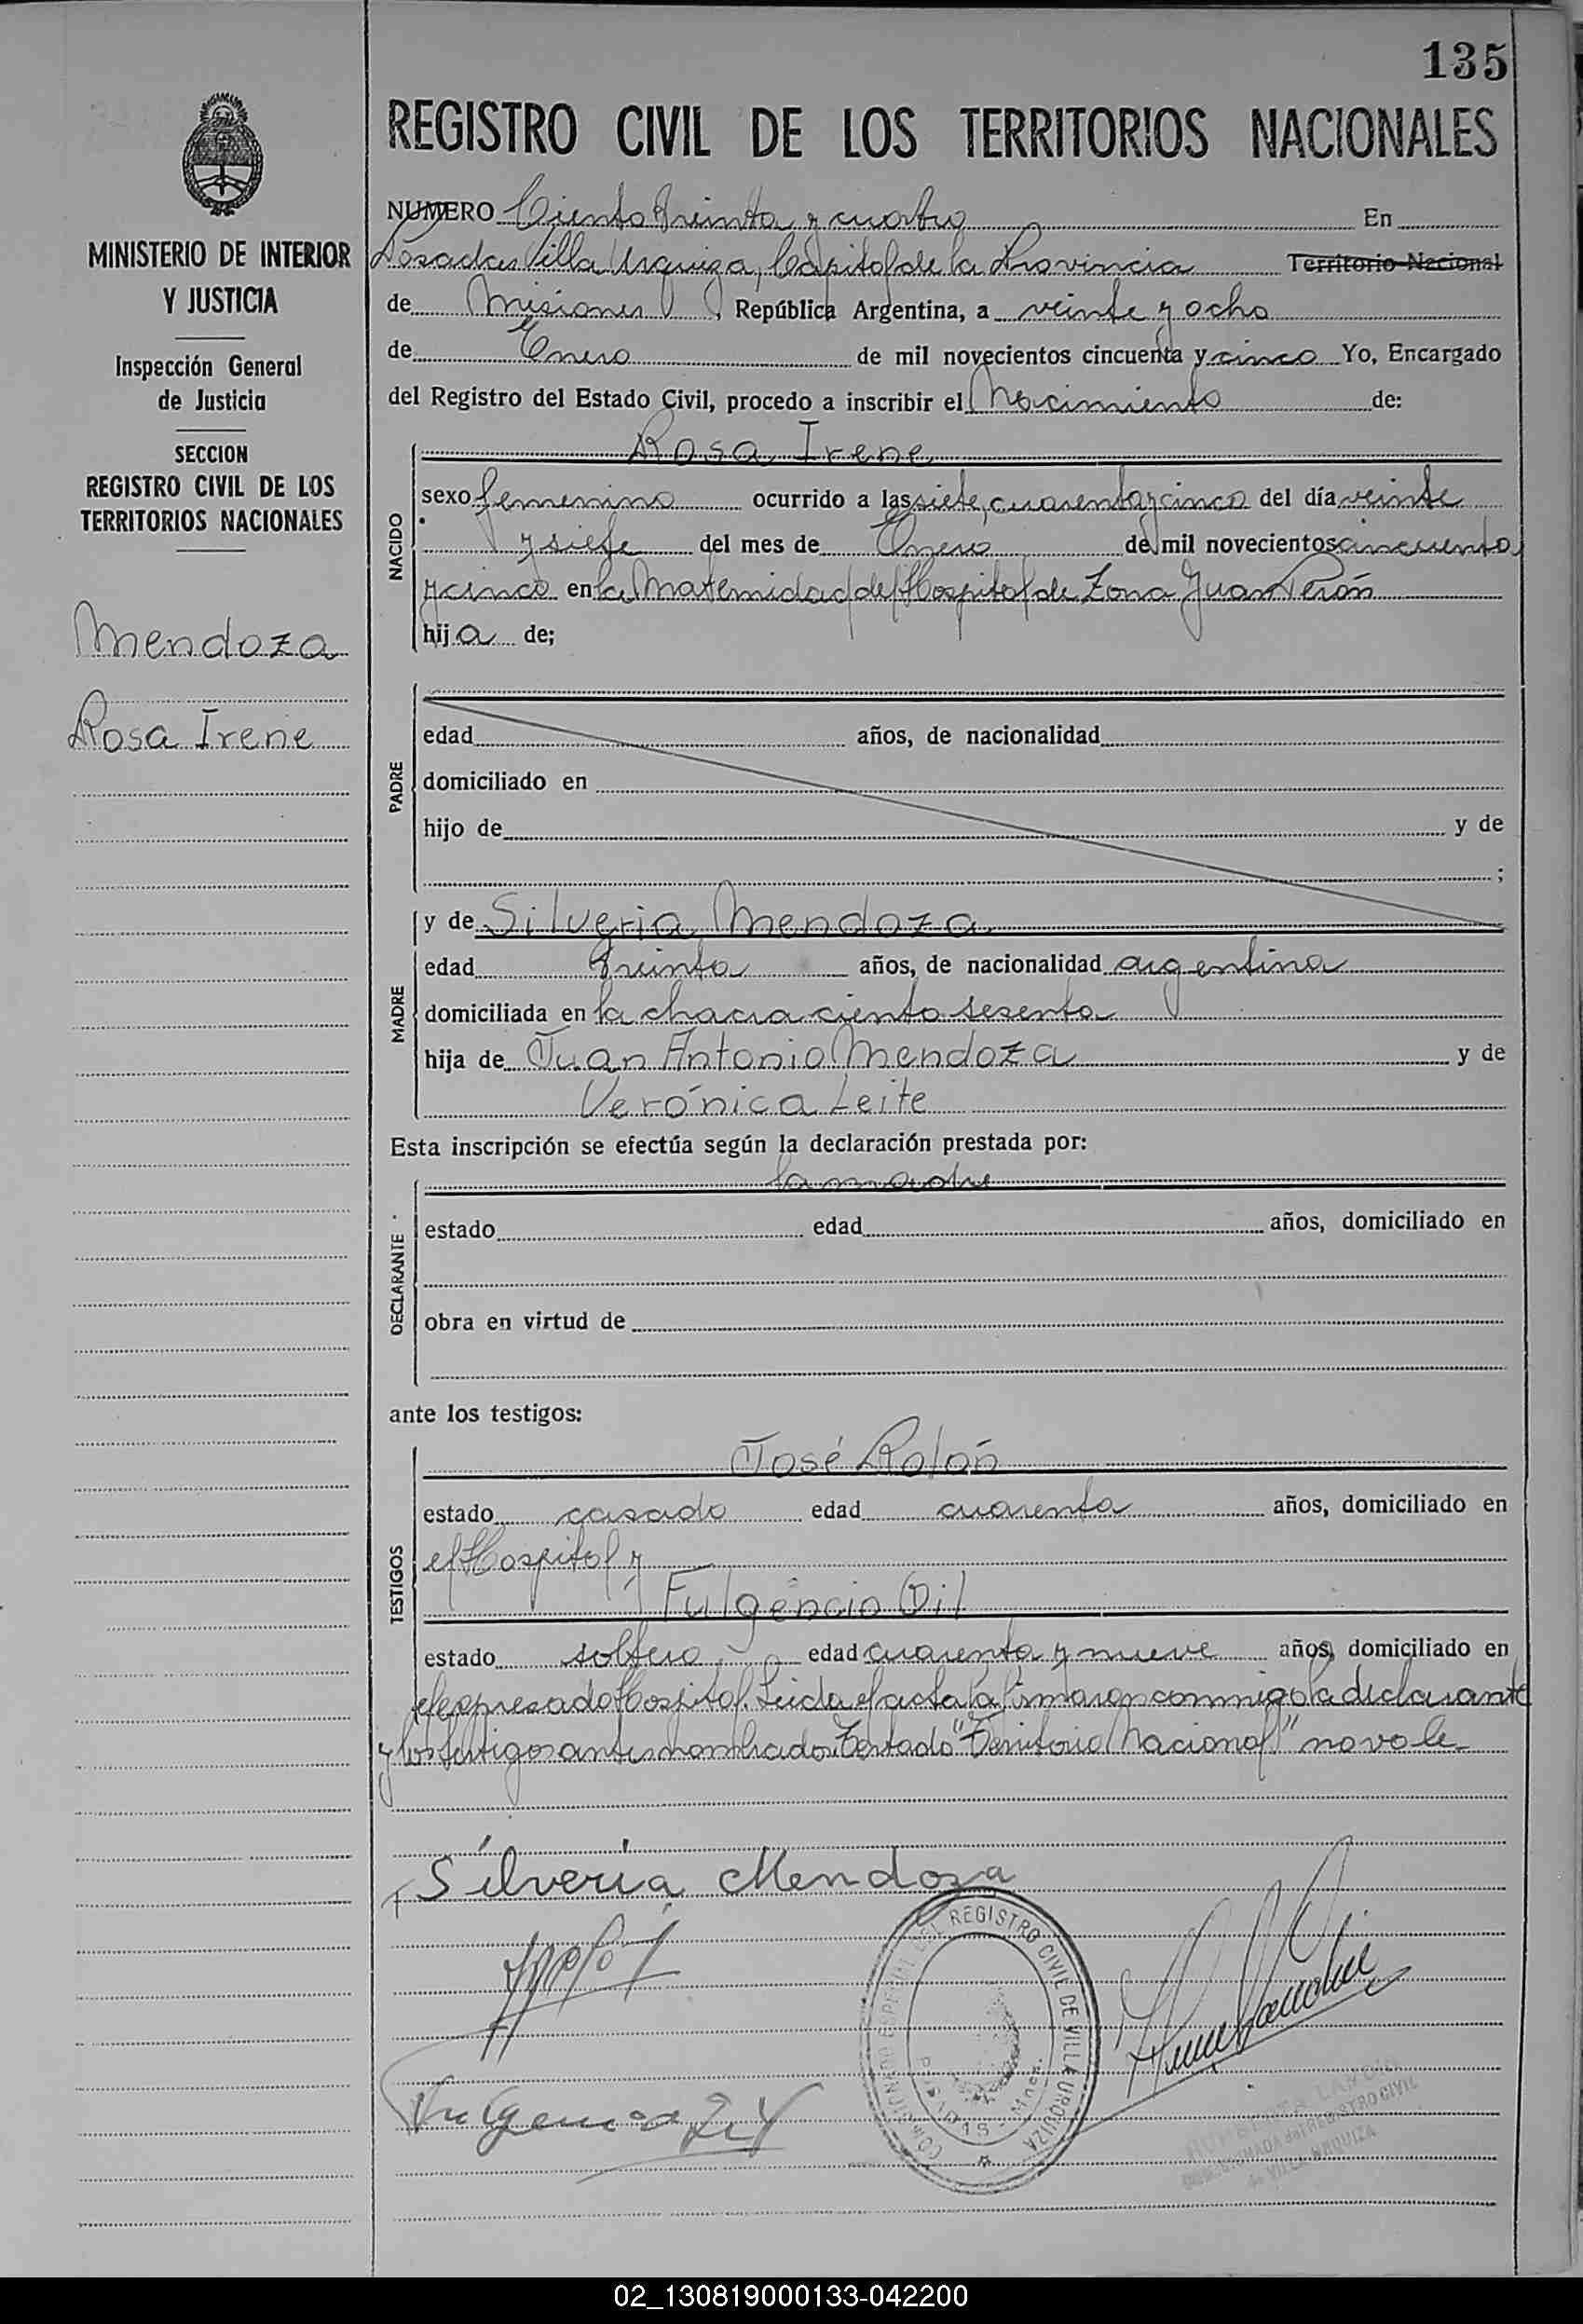 135
REGISTRO CIVIL DE LOS TERRITORIOS NACIONALES
MINISTERIO DE INTERIOR
Y JUSTICIA
Inspección General
de Justicia
SECCION
REGISTRO CIVIL DE LOS
TERRITORIOS NACIONALES
Mendoza
Rosa Irene
NUMERO Ciento treinta y cuatro En
Posadas Villa Urquiza, Capital de la Provincia Territorio Nacional
de Misiones, República Argentina, a veinte y ocho
de Enero de mil novecientos cincuenta y cinco Yo, Encargado
del Registro del Estado Civil, procedo a inscribir el Nacimiento de:
Rosa Irene
NACIDO
sexo femenino ocurrido a las siete, cuarenta y cinco del día veinte
y siete del mes de Enero de mil novecientos cincuenta
y cinco en la Maternidad del Hospital de Zona Juan Perón
hija de;
PADRE
edad años, de nacionalidad
domiciliado en
hijo de y de
;
MADRE
y de Silveria Mendoza
edad treinta años, de nacionalidad argentina
domiciliada en la chacra ciento sesenta
hija de Juan Antonio Mendoza y de
Verónica Leite
Esta inscripción se efectúa según la declaración prestada por:
la madre
DECLARANTE
estado edad años, domiciliado en
obra en virtud de
ante los testigos:
TESTIGOS
José Rolón
estado casado edad cuarenta años, domiciliado en
el Hospital y
Fulgencio Gil
estado soltero edad cuarenta y nueve años, domiciliado en
el expresado Hospital. Leida el acta la firmaron conmigo la declarante
y los testigos antes nombrados. Testado "Territorio Nacional" no vale
Silveria Mendoza
REGISTRO CIVIL DE VILLA URQUIZA
POSADAS - Mnes.
REGISTRO CIVIL
de VILLA URQUIZA
02_130819000133-042200